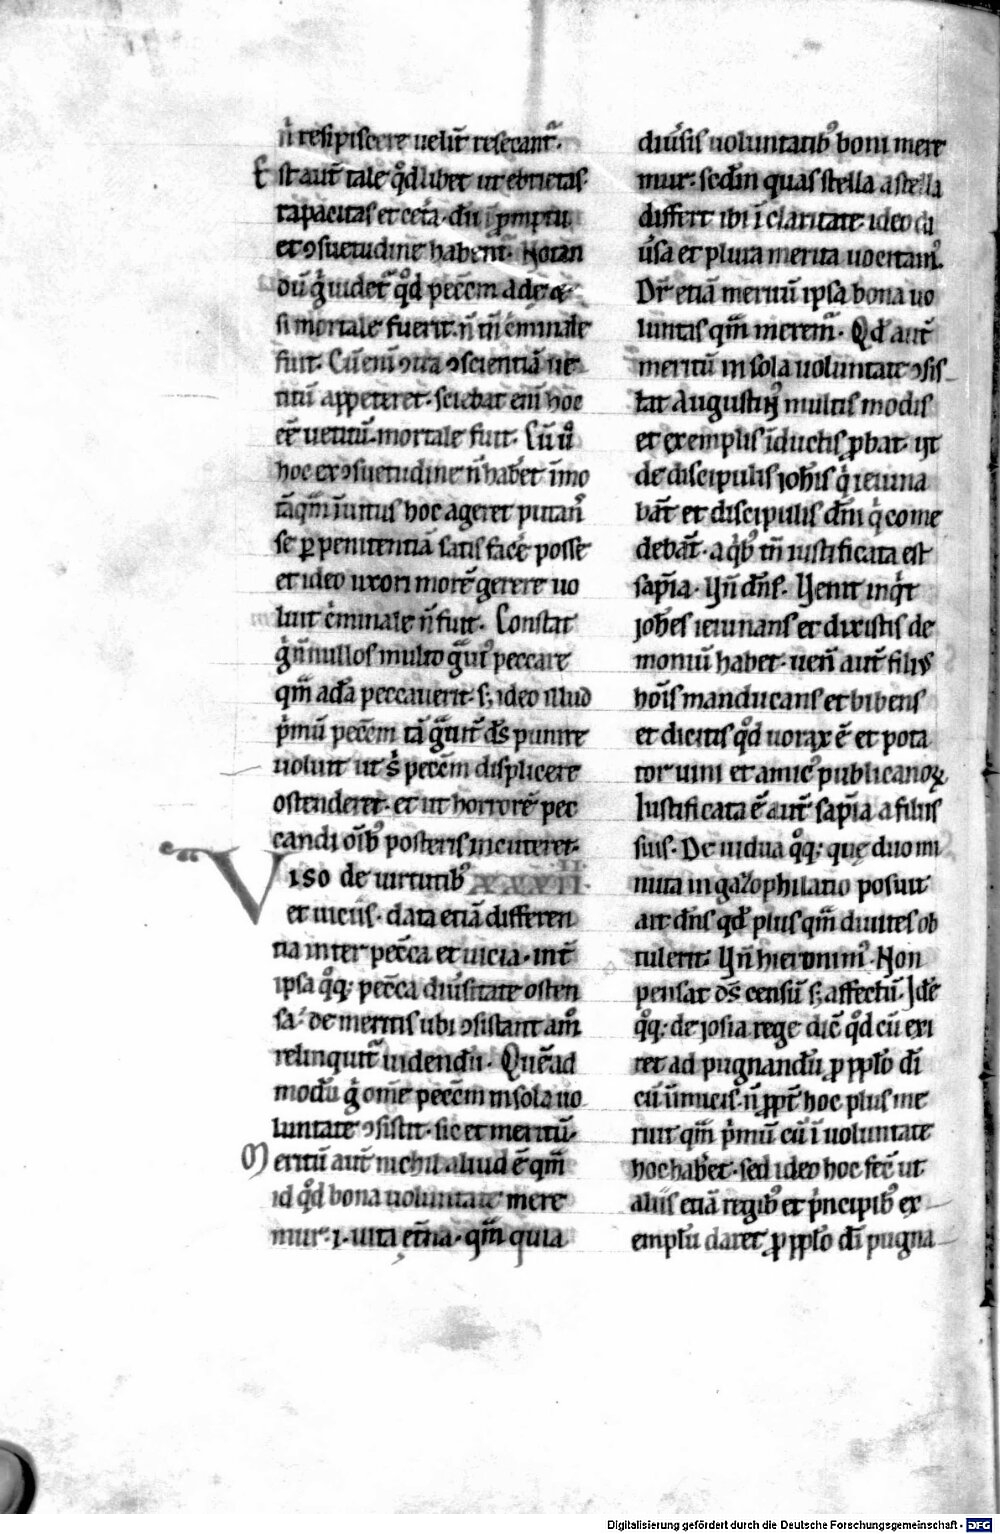 n̄ resipiscere uelit̄ resecant᷑.
Est aut̄ tale qͦdlibet ut ebrietas.
rapacitas et cet̄a. dū ī prомptu
et ꝯsuetudine habent᷑. Notan
dū gͥ uidet᷑ qͦd pecc̄m ade ⁊
si mortale fuerit. n̄ tn̄ c̄minale
fuit. Cū eni ꝯtra ꝯscientiā ue
titū appeteret. sciebat eni hoc
eē uetitū. mortale fuit. Cū uͦ
hoc ex ꝯsuetudine n̄ hab̄et īmo
tāqm̄ īuitus hoc ageret putan᷑
se ꝑ penitentiā satis face᷑ posse
et ideo uxori morē gerere uo
luit c̄minale n̄ fuit. Constat
gͥ n̄nullos multo gͣuiꝰ peccare
qm̄ adā peccauerit. s; ideo illud
pͥmū pecc̄m tā gͣuit᷑ ds̄ punire
uoluit ut sͥ pecc̄m displicere
ostenderet. et ut horrorē pec
candi oīb; posteris incuteret.
VISO de uirtutibꝰ
et uiciis. data etiā differen
tia inter pecc̄a et uicia. int̄
ipsa qͦq; pecc̄a diūsitate osten
sa. de meritis ubi ꝯsistant amͦ
relinquit᷑ uidendū. Quēad
modū gͥ om̄e pecc̄m in sola uo
luntate ꝯsistit. sic et meritū.
Meritū aut̄ nichil aliud ē qm̄
id qͦd bona uoluntate mere
mur. i. uita et̄na. qm̄ quia
diūsis uoluntatibꝰ boni mere
mur. scdm̄ quas stella a stella
differt ibi ī claritate. ideo di
ūsa et plura merita uocitamꝰ.
Dr̄ etiā meritū ipsa bona uo
luntas qm̄ meremr̄. Qd̄ aut̄
meritū in sola uoluntate ꝯsis
tat Augustinꝰ multis modis
et exemplis īductis ꝓbat. ut
de discipulis ioh̄is qͥ ieiuna
bāt et discipulis dn̄i qͥ come
debāt. a qͥbꝰ tn̄ iustificata est
sapīa. Un̄ dn̄s. Uenit inqͥt
ioh̄es ieiunans et dixistis de
moniū habet. ueń aut̄ filiꝰ
hoīs manducans et bibens
et dicitis qͦd uorax ē et pota
tor uini et amicꝰ publicanoꝝ
Iustificata ē aut̄ sapīa a filiis
suis. De uidua qͦq; quę duo mi
nuta in gazophilatio posuit
ait dn̄s qd̄ plus qm̄ diuites ob
tulerit. Un̄ hieronimꝰ. Non
pensat ds̄ censū s; affectū. Idē
qͦq; de josia rege dic̄ qͦd cū exi
ret ad pugnandū ꝓ pplo dī
cū inimicis. n̄ ꝓpt̄ hoc plus me
ruit qm̄ pͥmū cū ī uoluntate
hoc hab̄et. sed ideo hoc fec̄ ut
aliis etiā regibꝰ et pͥncipibꝰ ex
emplū daret ꝓ pplo dī pugna
Digitalisierung gefördert durch die Deutsche Forschungsgemeinschaft - DFG